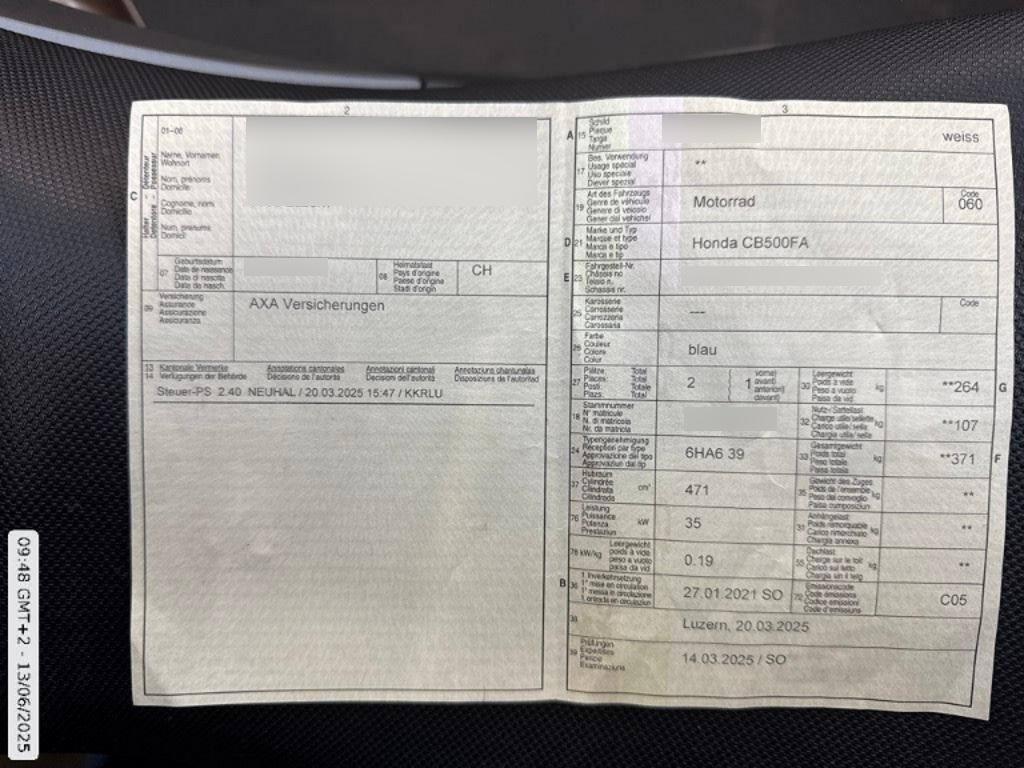 2
01-06
C
Halter - Détenteur
Detentore - Possessur
Name, Vornamen
Wohnort
Nom, prénoms
Domicile
Cognome, nomi
Domicilio
Num, prenums
Domicil
07
Geburtsdatum
Date de naissance
Data di nascita
Data da nasch.
08
Heimatstaat
Pays d'origine
Paese d'origine
Stadi d'origin
CH
09
Versicherung
Assurance
Assicurazione
Assicuranza
AXA Versicherungen
13
14
Kantonale Vermerke
Verfügungen der Behörde
Annotations cantonales
Décisions de l'autorité
Annotazioni cantonali
Decisioni dell'autorità
Annotaziuns chantunalas
Disposiziuns da l'autoritad
Steuer-PS 2.40 NEUHAL / 20.03.2025 15:47 / KKRLU
3
A
15
Schild
Plaque
Targa
Numer
weiss
17
Bes. Verwendung
Usage spécial
Uso speciale
Diever spezial
**
19
Art des Fahrzeugs
Genre de véhicule
Genere di veicolo
Gener dal vehichel
Motorrad
Code
060
D
21
Marke und Typ
Marque et type
Marca e tipo
Marca e tip
Honda CB500FA
E
23
Fahrgestell-Nr.
Châssis no
Telaio n.
Schassis nr.
25
Karosserie
Carrosserie
Carrozzeria
Carossaria
---
Code
26
Farbe
Couleur
Colore
Colur
blau
27
Plätze Total
Places: Total
Posti: Totale
Plazs: Total
2
1
vorne)
avant)
anteriori)
davant)
30
Leergewicht
Poids à vide
Peso a vuoto
Paisa da vid
kg
**264
G
18
Stammnummer
N° matricule
N. di matricola
Nr. da matricla
32
Nutz-/Sattellast
Charge utile/sellette
Carico utile/sella
Chargia utila/sella
kg
**107
24
Typengenehmigung
Réception par type
Approvazione del tipo
Approvaziun dal tip
6HA6 39
33
Gesamtgewicht
Poids total
Peso totale
Paisa totala
kg
**371
F
37
Hubraum
Cylindrée
Cilindrata
Cilindrada
cm³
471
35
Gewicht des Zuges
Poids de l'ensemble
Peso del convoglio
Paisa cumposiziun
kg
**
76
Leistung
Puissance
Potenza
Prestaziun
kW
35
31
Anhängelast
Poids remorquable
Carico rimorchiato
Chargia annexa
kg
**
78 kW/kg
Leergewicht
poids à vide
peso a vuoto
paisa da vid
0.19
55
Dachlast
Charge sur le toit
Carico sul tetto
Chargia sin il tetg
kg
**
B
36
1. Inverkehrsetzung
1re mise en circulation
1a messa in circolazione
1. entrada en circulaziun
27.01.2021 SO
72
Emissionscode
Code émissions
Codice emissioni
Code d'emissiuns
C05
38
Luzern, 20.03.2025
39
Prüfungen
Expertises
Perizie
Examinaziuns
14.03.2025 / SO
09:48 GMT+2 - 13/06/2025